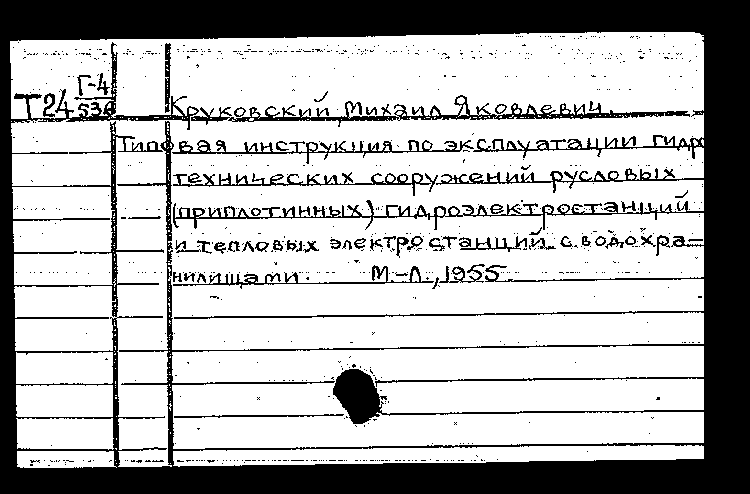 Т24 Г-4
536
Круковский, Михаил Яковлевич.
Типовая инструкция по эксплуатации гидро
технических сооружений русловых
(приплотинных) гидроэлектростанций
и тепловых электростанций с водохра=
нилищами. М.-Л., 1955